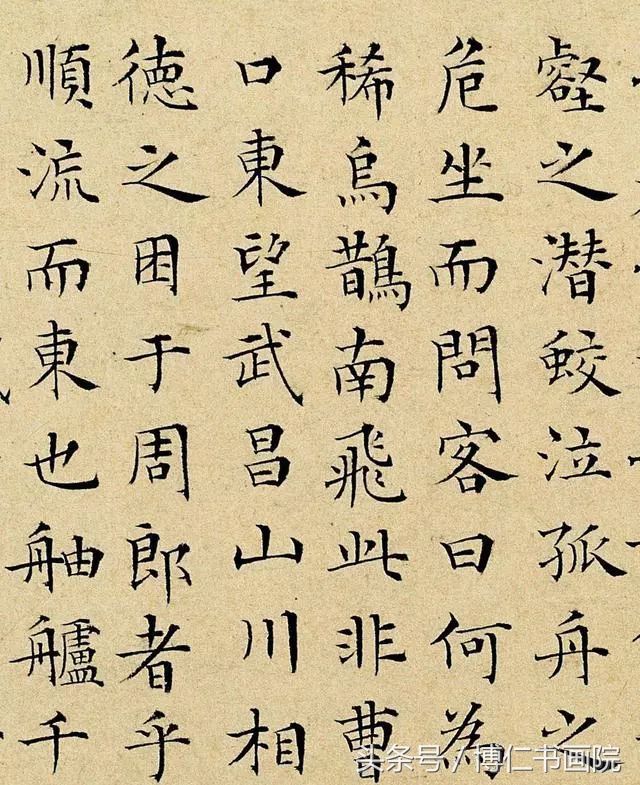 壑之潜蛟泣孤舟之
危坐而問客曰何為
稀烏鵲南飛此非曹
口東望武昌山川相
徳之困于周郎者乎
順流而東也舳艫千
头条号/博仁书画院